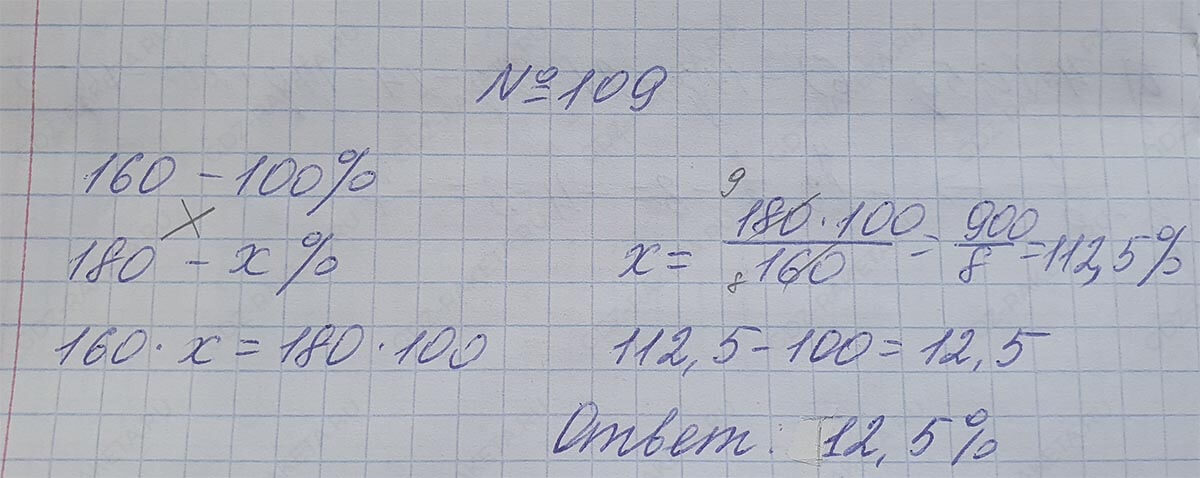 №109
160 – 100%
180 – x%
160 · x = 180 · 100
9
x = 180 · 100 / 160 = 900 / 8 = 112,5%
8
112,5 – 100 = 12,5
Ответ: 12,5%